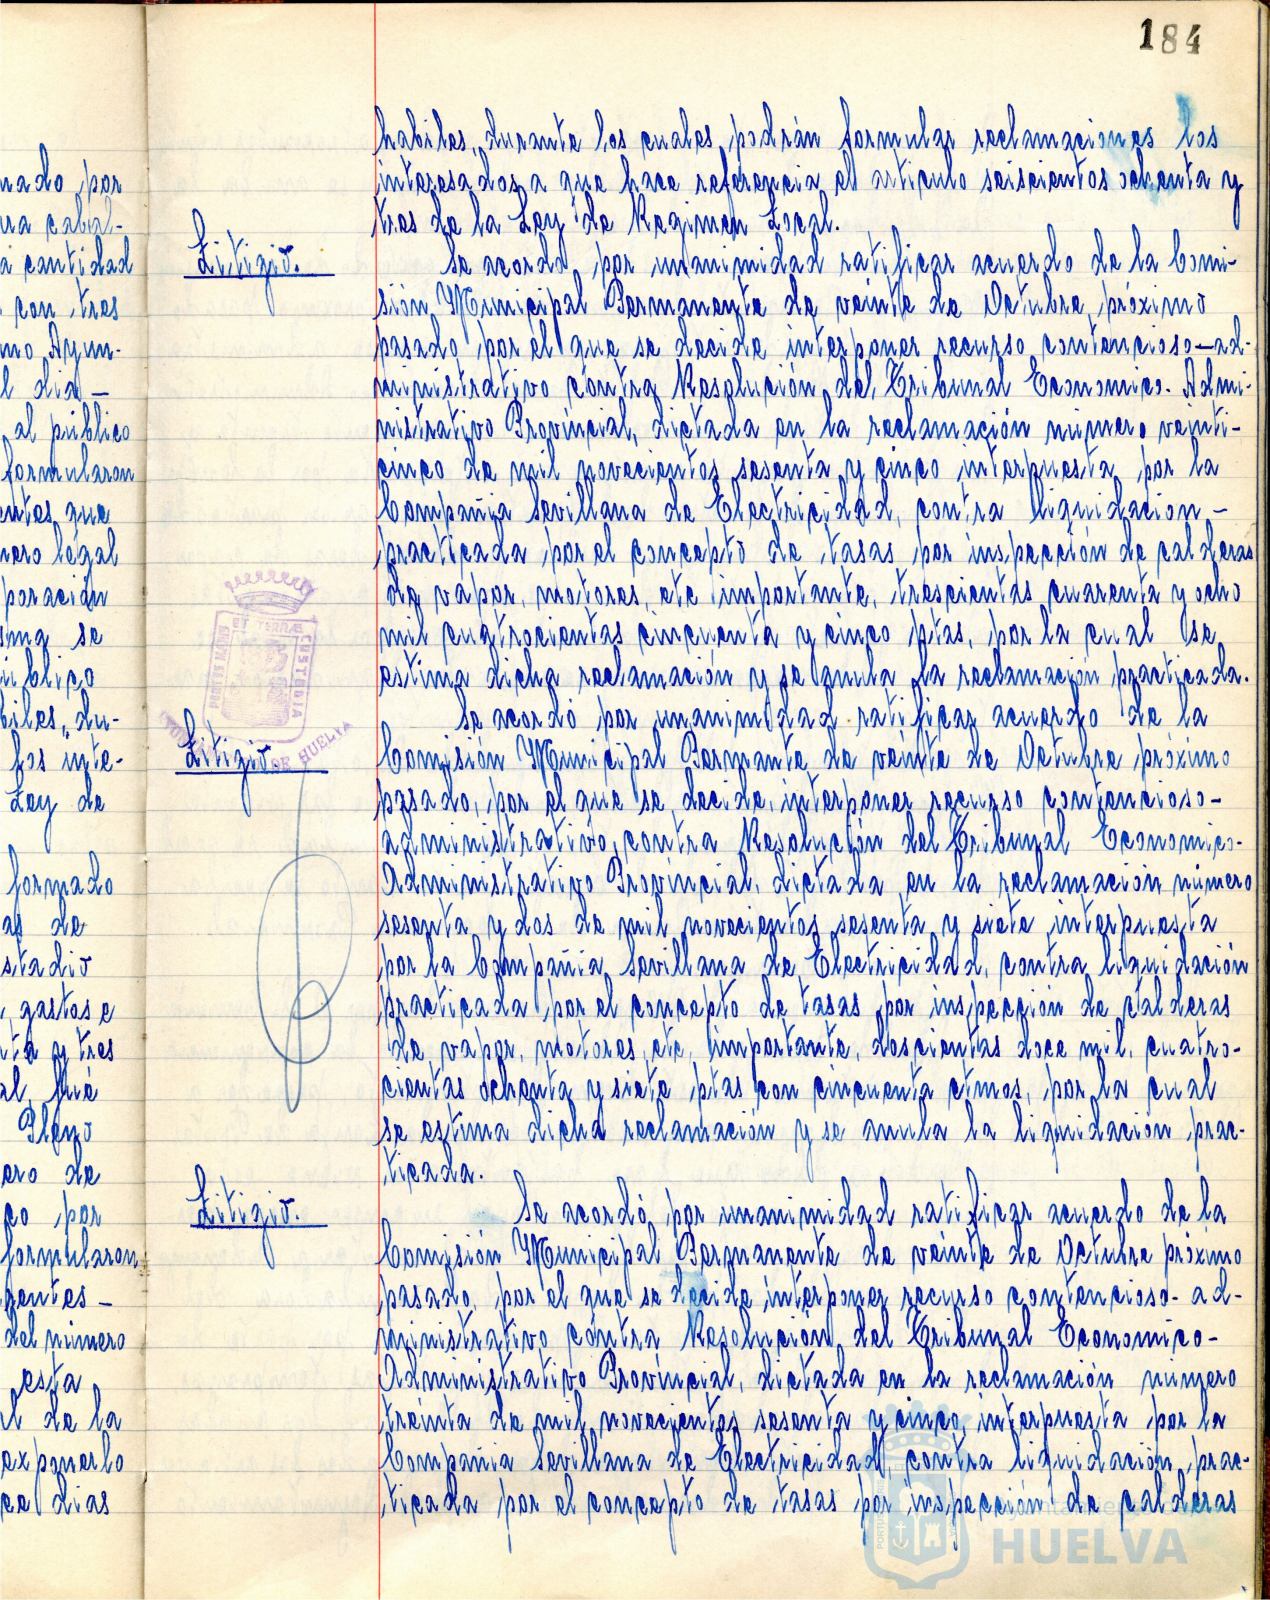 184
habiles, durante los cuales podrán formular reclamaciones los
interesados a que hace referencia el articulo seiscientos ochenta y
tres de la Ley de Regimen Local.
Litigio.
Se acordó por unanimidad ratificar acuerdo de la Comi-
sión Municipal Permanente de veinte de Octubre próximo
pasado, por el que se decide interponer recurso contencioso-ad-
ministrativo contra Resolución del Tribunal Economico-Admi-
nistrativo Provincial, dictada en la reclamación número veinti-
cinco de mil novecientos sesenta y cinco interpuesta por la
Compañia Sevillana de Electricidad, contra liquidacion -
practicada por el concepto de tasas por inspección de calderas
de vapor, motores, etc importante, trescientas cuarenta y ocho
mil cuatrocientas cincuenta y cinco ptas, por la cual se
estima dicha reclamación y se anula la reclamación practicada.
Litigio.
Se acordó por unanimidad ratificar acuerdo de la
Comisión Municipal Permante de veinte de Octubre próximo
pasado, por el que se decide, interponer recurso contencioso-
administrativo, contra Resolución del Tribunal Economico-
Administrativo Provincial, dictada en la reclamación número
sesenta y dos de mil novecientos sesenta y siete interpuesta
por la Compañia Sevillana de Electricidad, contra liquidación
practicada por el concepto de tasas por inspección de calderas
de vapor, motores, etc, importante, doscientas doce mil, cuatro-
cientas ochenta y siete ptas con cincuenta ctmos, por la cual
se estima dicha reclamación y se anula la liquidación prac-
ticada.
Litigio.
Se acordó por unanimidad ratificar acuerdo de la
Comisión Municipal Permanente de veinte de Octubre próximo
pasado, por el que se decide interponer recurso contencioso-ad-
ministrativo contra Resolución del Tribunal Economico-
Administrativo Provincial, dictada en la reclamación número
treinta de mil novecientos sesenta y cinco, interpuesta por la
Compañia Sevillana de Electricidad, contra liquidación prac-
ticada por el concepto de tasas por inspección de calderas
HUELVA